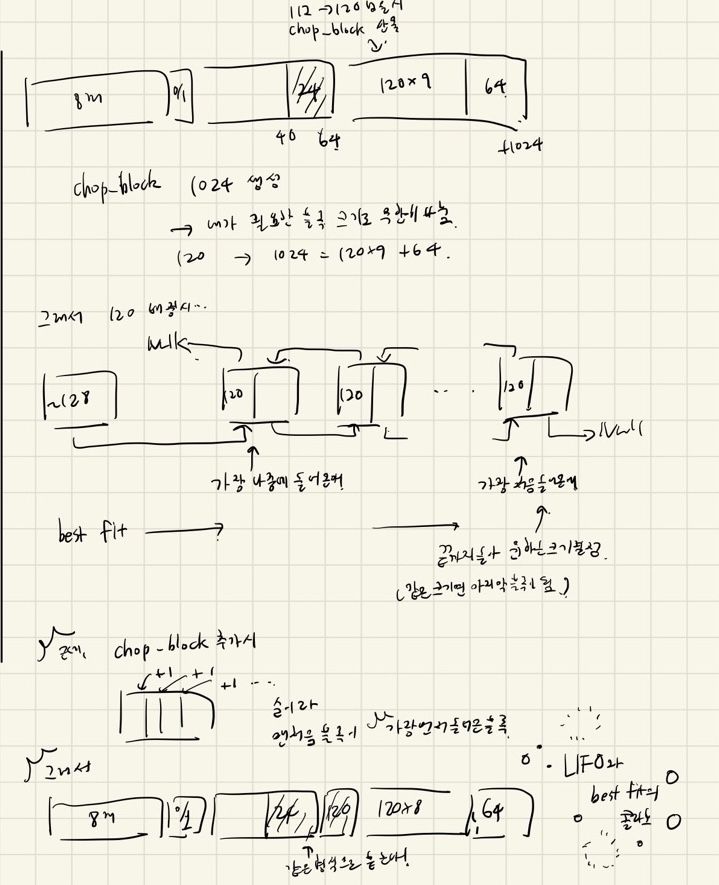 112 → 120 필요시
chop_block 안움
8m 0/1 24 120×9 64
40 64 +1024
chop_block 1024 생성
→ 내가 필요한 블록 크기로 무한히 나눔.
120 → 1024 = 120×9 + 64.
그래서 120 배정시...
Null
~128 120 120 ... 120
Null
가장 나중에 들어온애 가장 처음 들어온애
best fit
끝까지 돌아 원하는 크기 블럭 선정.
(같은 크기면 마지막 블록이 됨.)
근데, chop_block 추가시
+1 +1 +1 ...
순이라
맨처음 블록이 가장 먼저 들어온 블록
그래서
8m 24 120 120×8 64
같은 형식으로
LIFO와
best fit의
콜라보